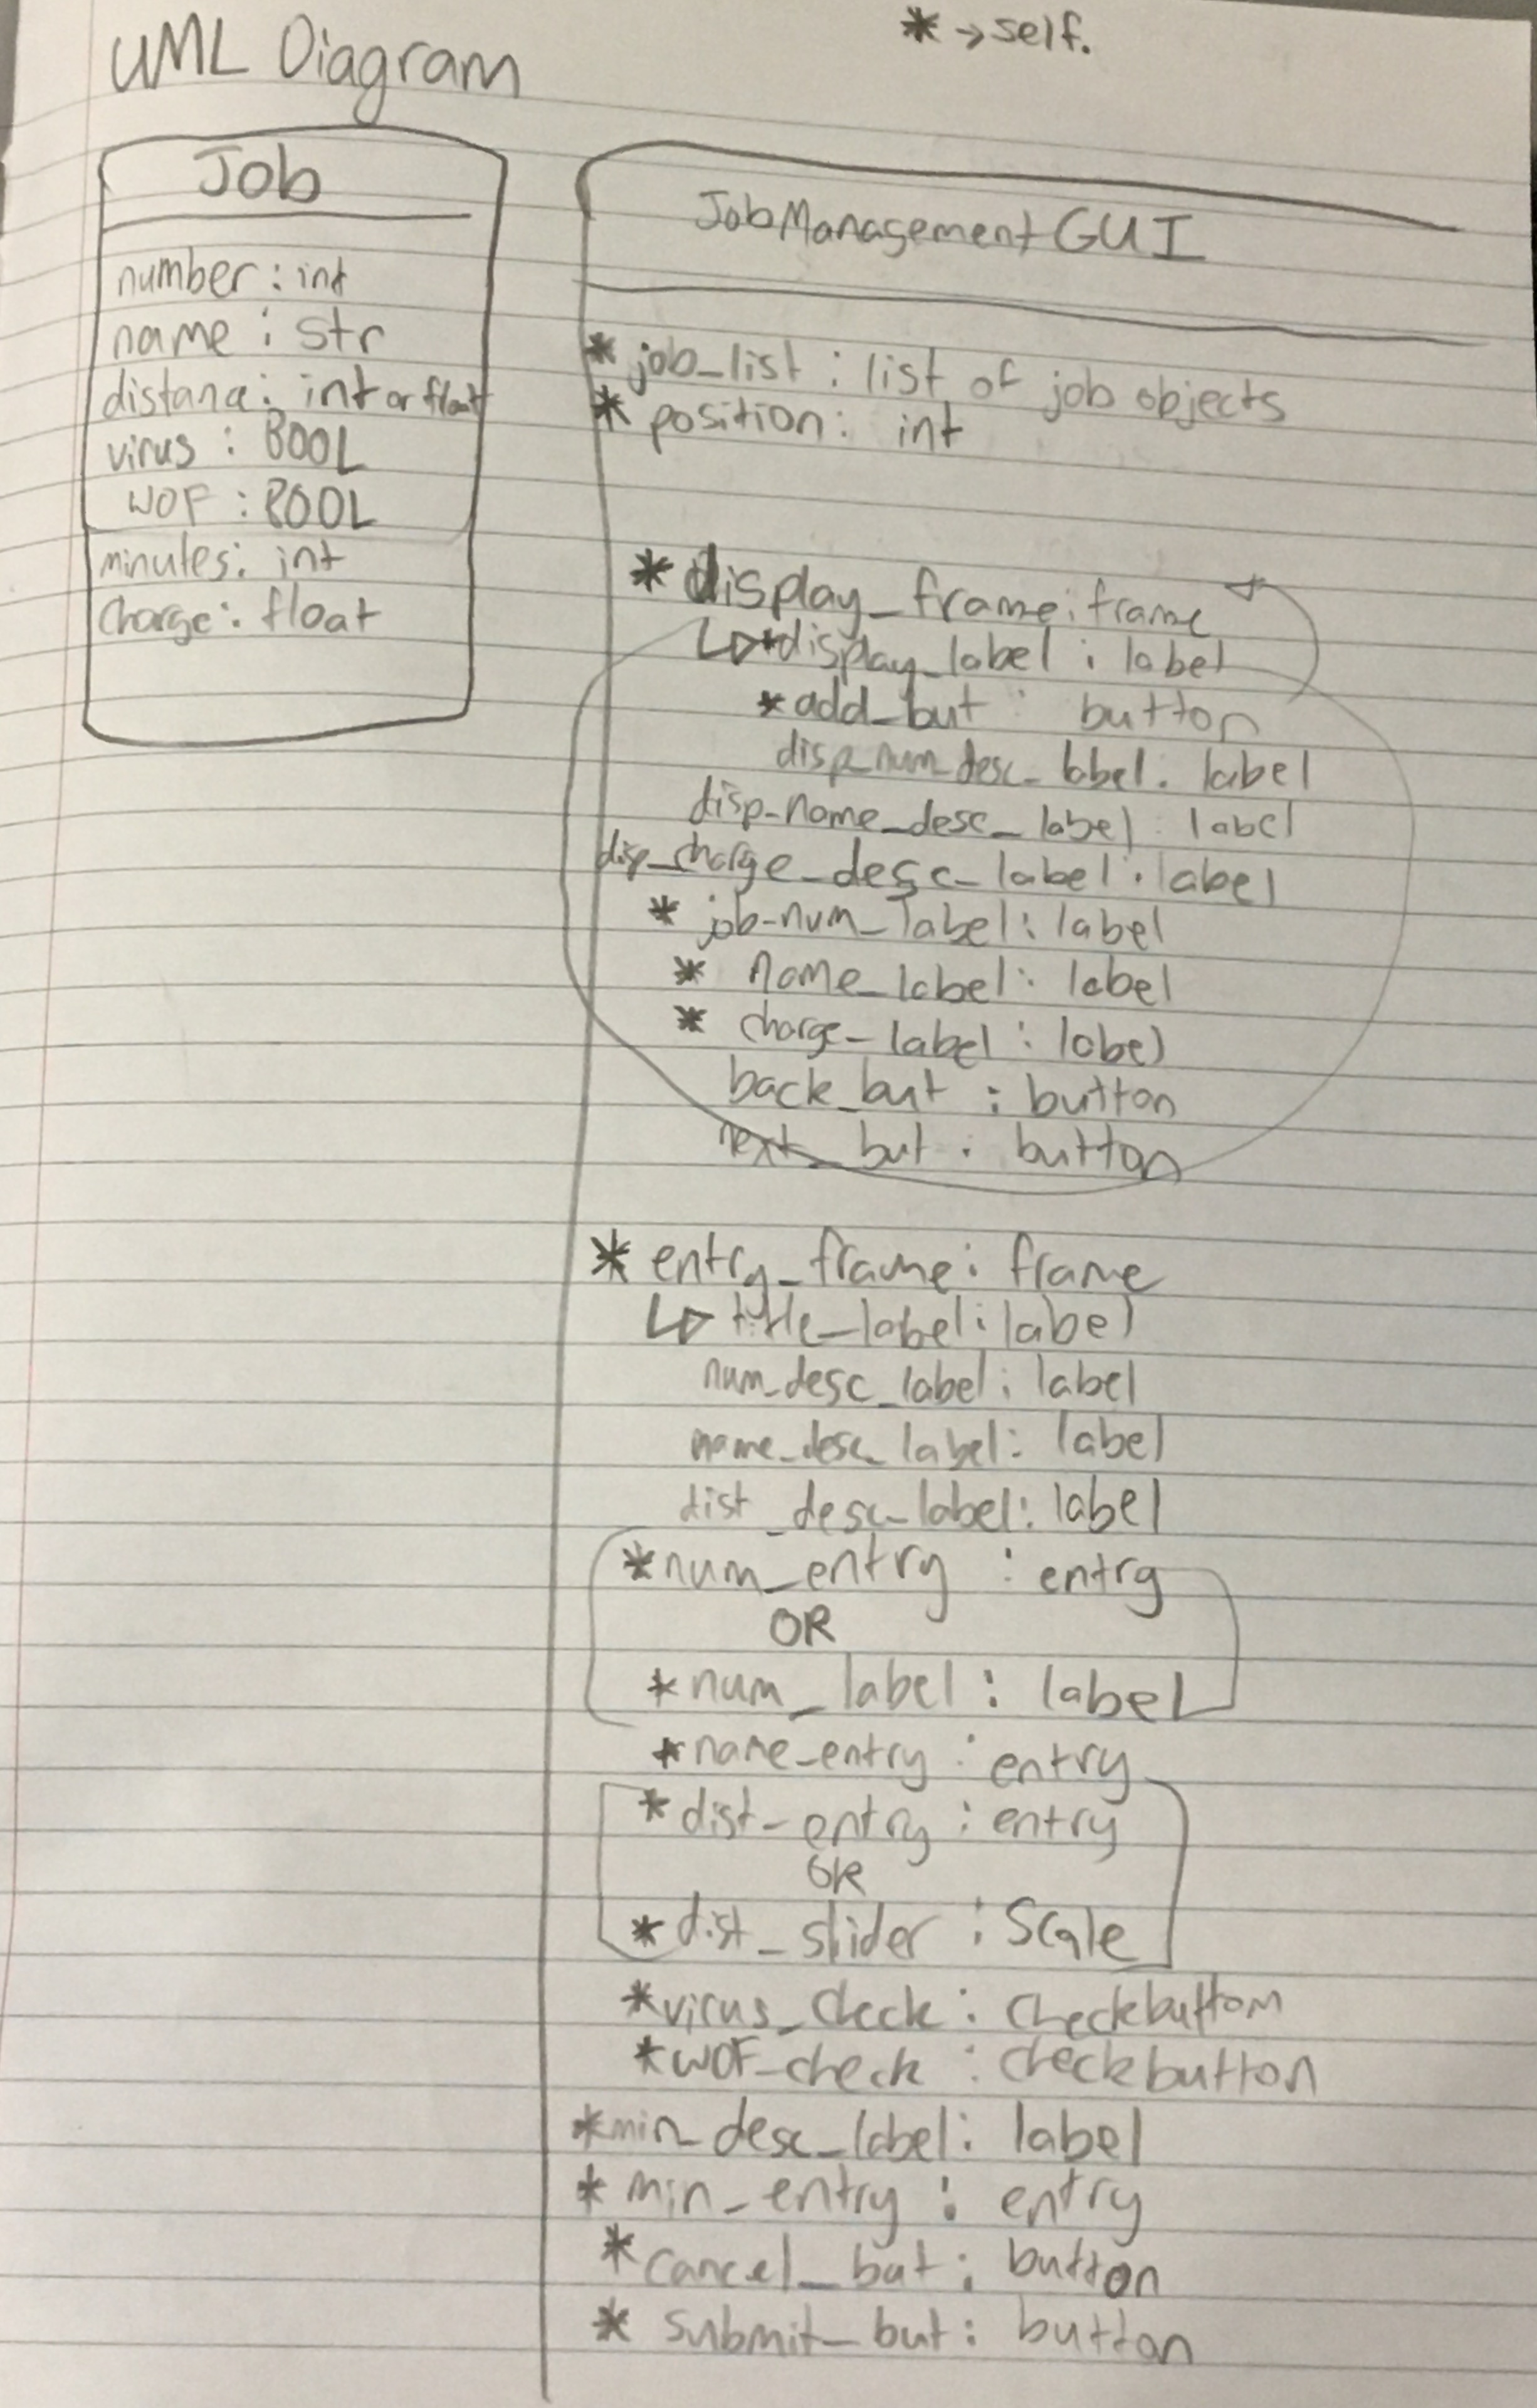 UML Diagram
* → self.
Job
number : int
name : str
distance : int or float
virus : BOOL
WOF : BOOL
minutes : int
Charge : float
JobManagementGUI
* job_list : list of job objects
* position : int
* display_frame : frame
*display_label : label
*add_but : button
disp_num_desc_label : label
disp_name_desc_label : label
disp_charge_desc_label : label
* job_num_label : label
* name_label : label
* charge_label : label
back_but : button
next_but : button
* entry_frame : frame
title_label : label
num_desc_label : label
name_desc_label : label
dist_desc_label : label
*num_entry : entry
OR
*num_label : label
*name_entry : entry
*dist_entry : entry
OR
*dist_slider : Scale
*virus_check : checkbutton
*WOF_check : checkbutton
*min_desc_label : label
* min_entry : entry
*cancel_but : button
* submit_but : button